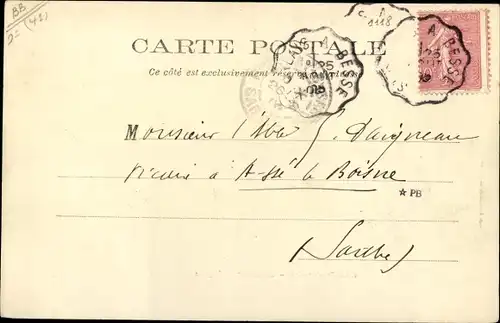 BB
(42)
1118
CARTE POSTALE
Ce côté est exclusivement réservé
CALAIS A BESSÉ
25
A BESSÉ
25
Monsieur l'Abbé J. Daigneau
vicaire à Assé le Boisne
★ PB
(Sarthe)